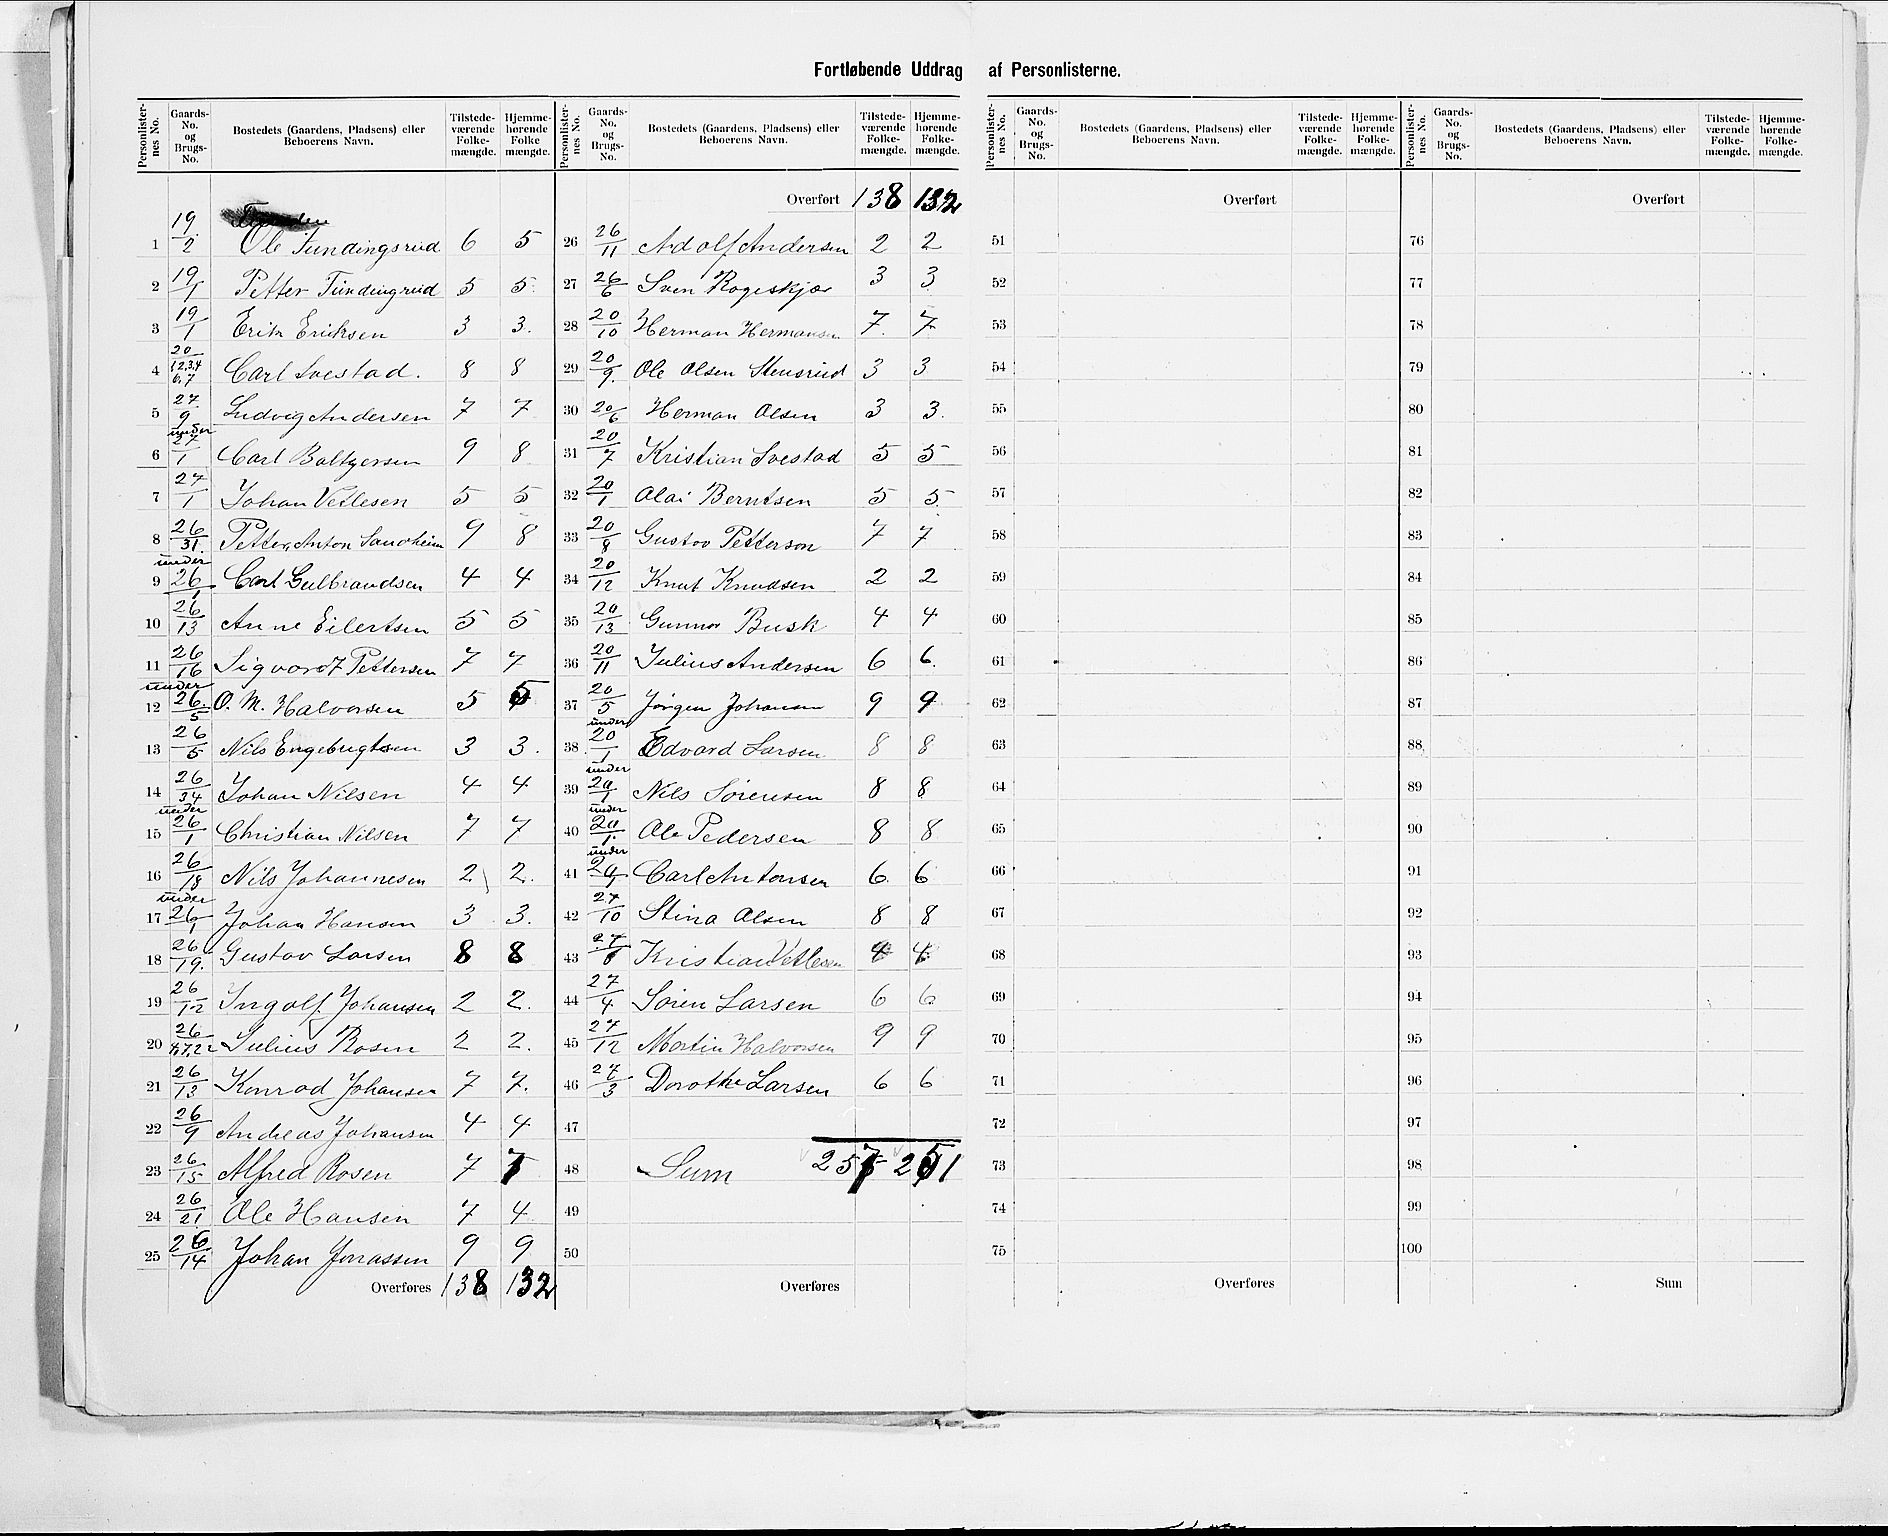 Fortløbende Uddrag af Personlisterne.
Personlister-nes No. Gaards-No. og Brugs-No. Bostedets (Gaardens, Pladsens) eller Beboerens Navn. Tilstede-værende Folke-mængde. Hjemme-hørende Folke mængde.
Personlister-nes No. Gaards-No. og Brugs-No. Bostedets (Gaardens, Pladsens) eller Beboerens Navn. Tilstede-værende Folke-mængde. Hjemme-hørende Folke-mængde.
1 19/2 Ole Tundingsrud 6 5
2 19/1 Petter Tundingrud 5 5
3 19/1 Erik Eriksen 3 3.
4 20/1 2,3,4 6,7 Carl Svestad. 8 8
5 27/9 Ludvig Andersen 7 7
6 under 27/1 Carl Baltzersen 9 8
7 27/1 Johan Vetlesen 5 5
8 26/31. Petter Anton Sandheim 9 8
9 under 26/1 Carl Gulbrandsen 4 4
10 26/13 Anne Eilertsen 5 5
11 26/16 Sigvardt Pettersen 7 7
12 under 26/5 O. M. Halvorsen 5 5
13 26/5 Nils Engebrigtsen 3 3.
14 26/34 Johan Nilsen 4 4
15 under 26/1 Christian Nilsen 7 7
16 26/18 Nils Johannesen 2 2.
17 under 26/1 Johan Hansen 3 3.
18 26/19. Gustav Larsen 8 8
19 26/12 Ingolf Johansen 2 2.
20 26/4,7,22 Julius Rosen 2 2.
21 26/13 Konrad Johansen 7 7.
22 26/9 Andreas Johansen 4 4
23 26/15 Alfred Rosen 7 7
24 26/21 Ole Hansen 7 4
25 26/14 Johan Jonassen 9 9
Overføres 138 132
Overført 138 132
26 26/11 Adolf Andersen 2 2
27 26/6 Sven Rogeskjær 3 3
28 20/10 Herman Hermansen 7. 7
29 20/9. Ole Olsen Stensrud 3 3
30 20/6 Herman Olsen 3 3.
31 20/7 Kristian Svestad 5 5
32 20/1 Olai Berntsen 5 5.
33 20/8 Gustav Petterson 7 7
34 20/12 Knut Knudsen 2 2
35 20/13 Gunnar Busk 4 4
36 20/11 Julius Andersen 6 6.
37 20/5 Jørgen Johansen 9 9
38 under 20/1 Edvard Larsen 8 8
39 under 20/1 Nils Sørensen 8 8
40 under 20/1. Ole Pedersen 8 8
41 under 20/1 Carl Antonsen 6. 6
42 27/10 Stina Olsen 8 8
43 27/6 Kristian Vetlesen 4 4
44 27/4 Søren Larsen 6 6
45 27/12 Martin Halvorsen 9 9
46 27/3 Dorothe Larsen 6 6
47
48 Sum 257 251
49
50
Overføres
Personlister-nes No. Gaards-No. og Brugs-No. Bostedets (Gaardens, Pladsens) eller Beboerens Navn. Tilstede-værende Folke-mængde. Hjemme-hørende Folke-mængde.
Overført
51
52
53
54
55
56
57
58
59
60
61
62
63
64
65
66
67
68
69
70
71
72
73
74
75
Overføres
Personlister-nes No. Gaards-No. og Brugs-No. Bostedets (Gaardens, Pladsens) eller Beboerens Navn. Tilstede-værende Folke-mængde. Hjemme-hørende Folke-mængde.
Overført
76
77
78
79
80
81
82
83
84
85
86
87
88
89
90
91
92
93
94
95
96
97
98
99
100
Sum